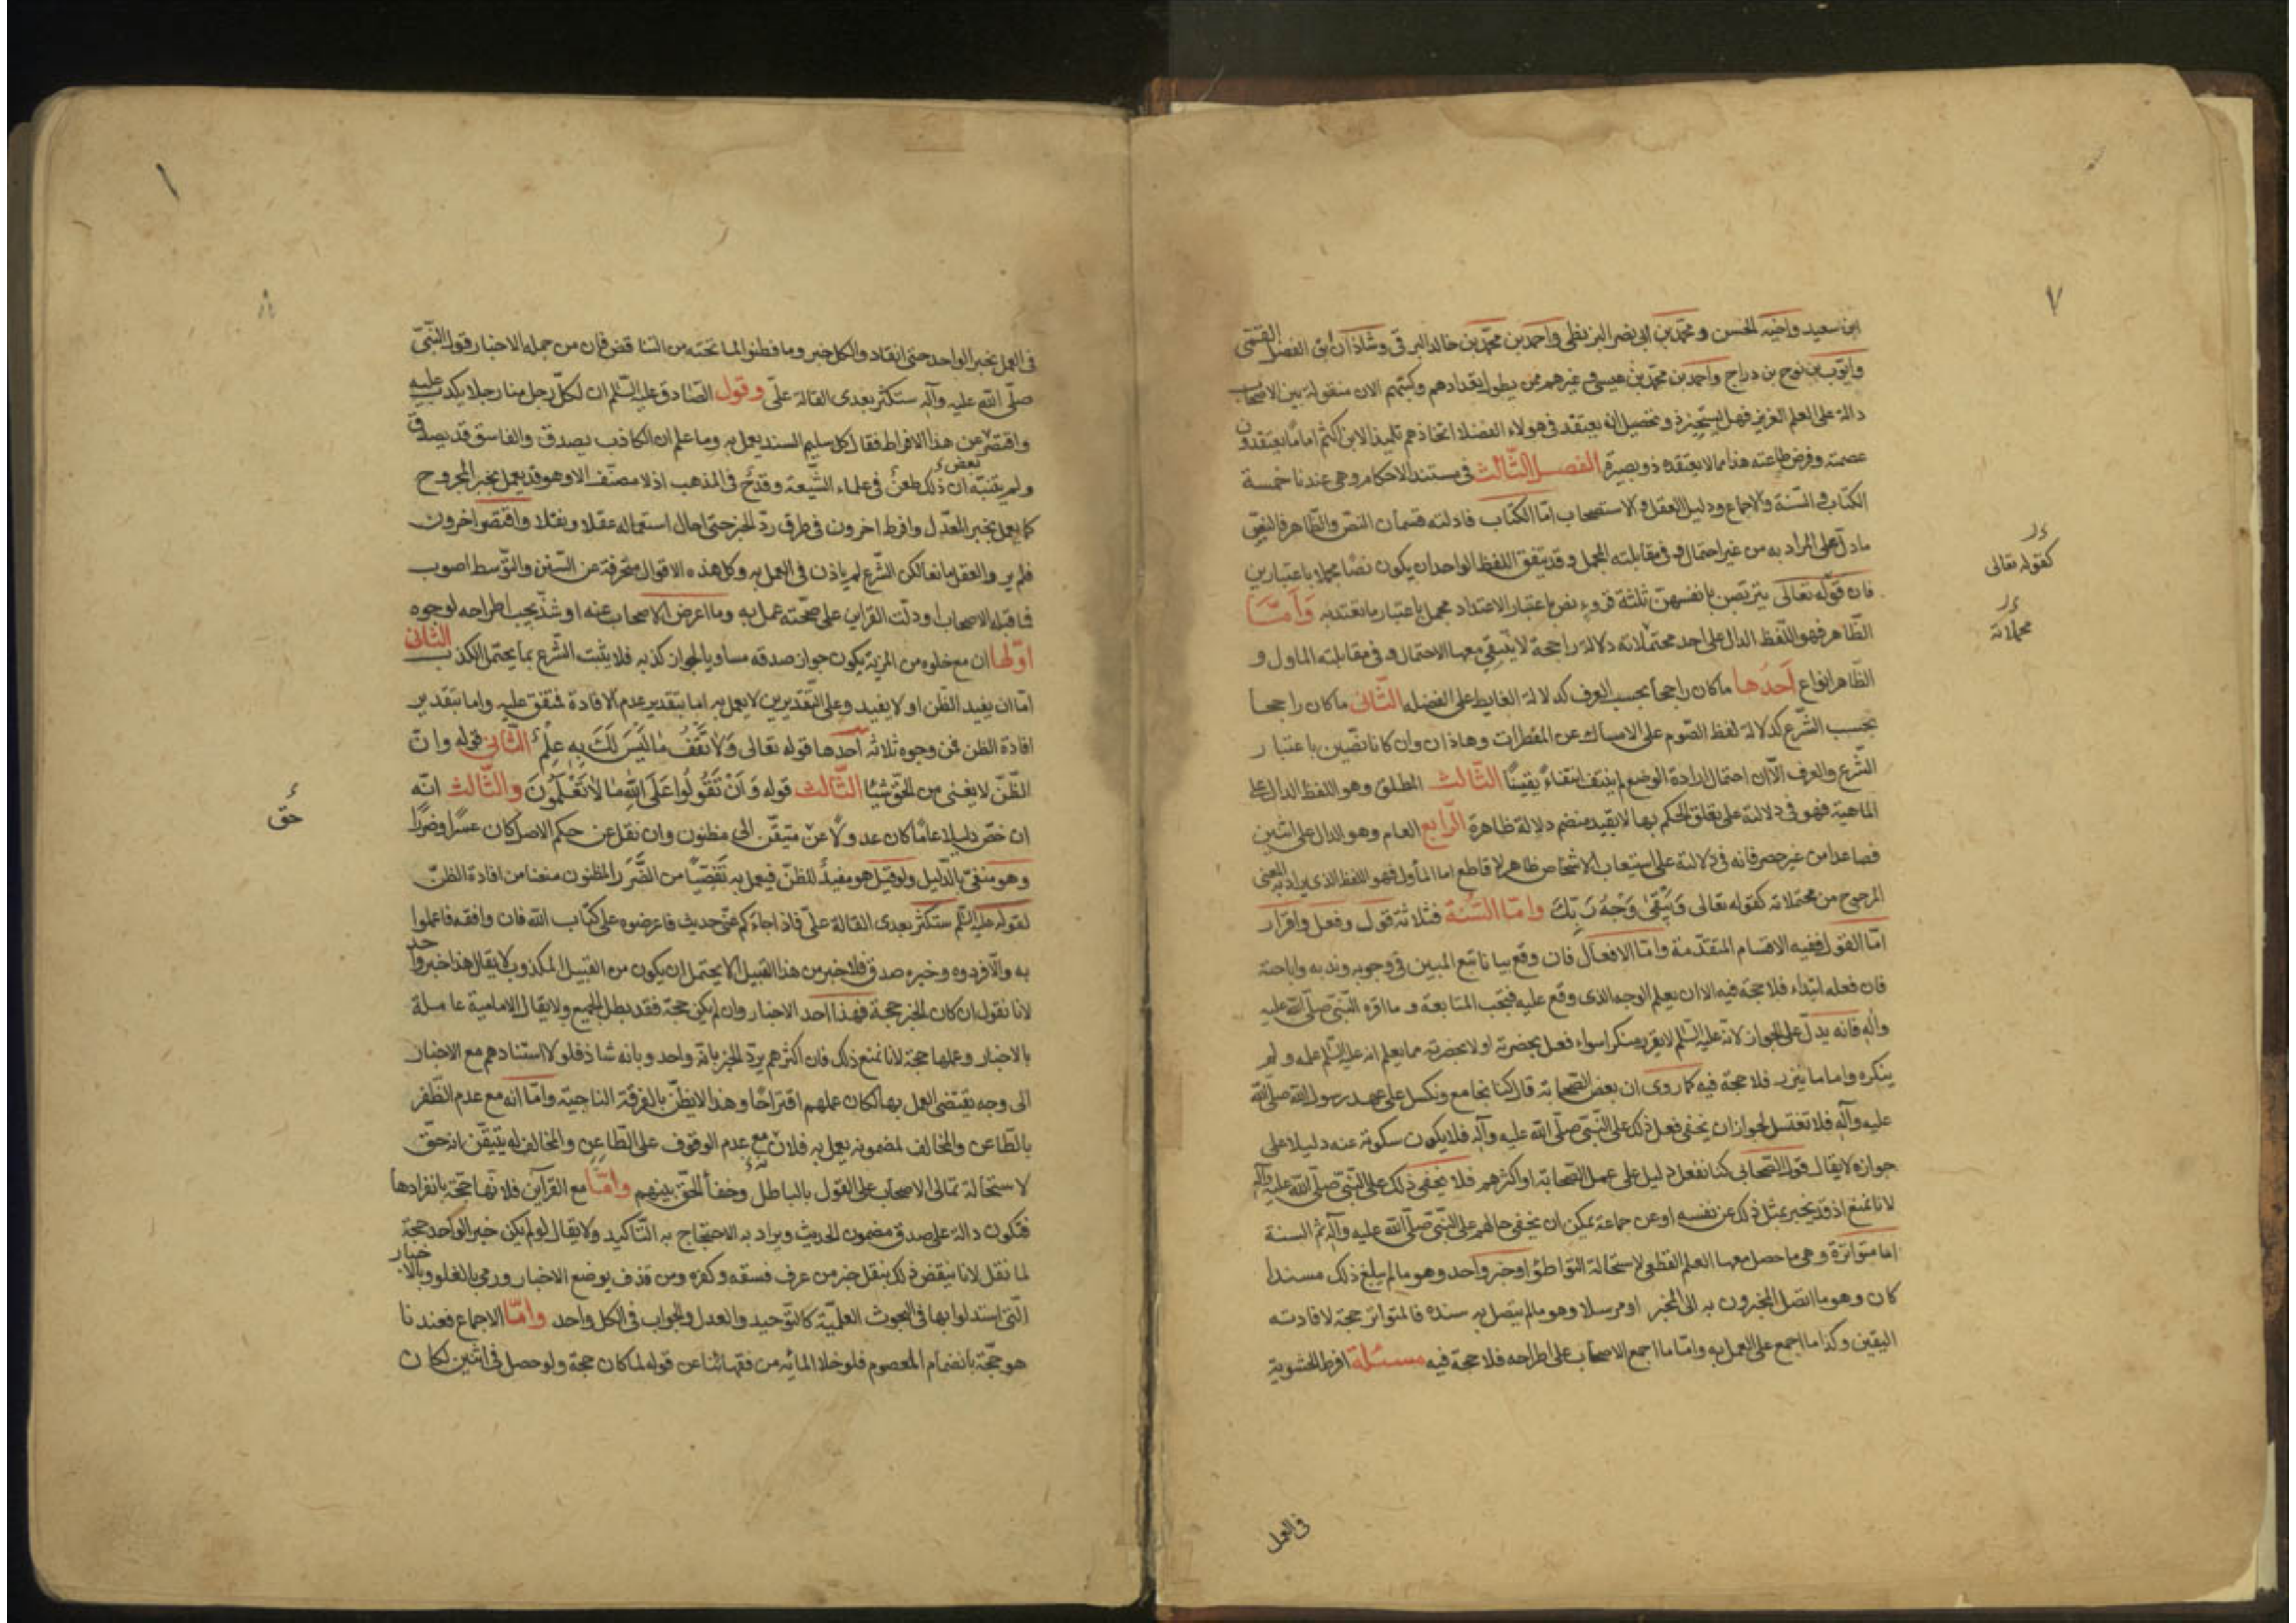 ٧
ابن سعيد واخيه الحسن ومحمّد بن ابى نصر البزنطى واحمد بن محمّد بن خالد البرقى وشاذان ابى الفضل القمّى
وايّوب بن نوح بن دراج واحمد بن محمّد بن عيسى وغيرهم ممن يطول تعدادهم وكتبهم الان منقولة بين الاصحاب
دالة على العلم الغزير فهل يستجيز ذو تحصيل ان يعتقد فى هولاء الفضلا اتخاذهم تلميذا لابن اكثم اماما يعتقدون
عصمته وفرض طاعته هذا مما لا يعتقده ذو بصيرة الفصل الثّالث فى مستند الاحكام وهى عندنا خمسة
الكتاب والسّنة والاجماع ودليل العقل والاستصحاب امّا الكتاب فادلته قسمان النصّ والظاهر فالنصّ
ما دلّ على المراد به من غير احتمال وفى مقابلته المجمل وقد يتفق اللفظ الواحد ان يكون نصّا مجملا باعتبارين
فان قوله تعالى يتربّصن بانفسهنّ ثلثة قروء نص باعتبار الاعتداد مجمل باعتبار ما تعتد به وَامّا
الظّاهر فهو اللّفظ الدال على احد محتملاته دلالة راجحة لا ينتفى معها الاحتمال وفى مقابلته الماول و
الظّاهر انواع اَحدُها ما كان راجحا بحسب العرف كدلالة الغايط على الفضله الثّانى ما كان راجحا
بحسب الشّرع كدلالة لفظ الصّوم على الامساك عن المفطرات وهاذان وان كانا نصّين باعتبار
الشّرع والعرف الّا ان احتمال ارادة الوضع لم ينتف انتفاءً يقينًا الثّالث المطلق وهو اللفظ الدال على
الماهية فهو فى دلالته على تعلق الحكم بها لا بقيد منضم دلالة ظاهرة الرّابع العام وهو الدال على اثنين
فصاعدا من غير حصر فانه فى دلالته على استيعاب الاشخاص ظاهر لا قاطع اما المأول فهو اللفظ الذى يراد به المعنى
المرجوح من محتملاته كقوله تعالى وَيَبْقٰى وَجْهُ رَبِّكَ وامّا السّنة فثلاثة قول وفعل واقرار
امّا القول ففيه الاقسام المتقدّمة وامّا الافعال فان وقع بيانا تتبع المبين فى وجوبه وندبه واباحته
فان فعله ابتداء فلا حجة فيه الا ان يعلم الوجه الذى وقع عليه فتجب المتابعة وما اقره النّبىّ صلّى اللّه عليه
وآله فانه يدلّ على الجواز لانّه عليه السّلم لا يقرّ منكرا سواء فعل بحضرته او لا بحضرته مما يعلم انه عليه السّلم علمه ولم
ينكره واما ما يندر فلا حجة فيه كما روى ان بعض الصّحابة قال كنا نجامع ونكسل على عهد رسول اللّه صلّى اللّه
عليه وآله فلا نغتسل لجواز ان يخفى فعل ذلك على النّبىّ صلّى اللّه عليه وآله فلا يكون سكوته عنه دليلا على
جوازه لا يقال قول الصّحابى كنا نفعل دليل على عمل الصّحابة او اكثرهم فلا يخفى ذلك على النّبىّ صلّى اللّه عليه وآله
لانا نمنع اذ قد يخبر بمثل ذلك عن نفسه او عن جماعة يمكن ان يخفى حالهم على النّبىّ صلّى اللّه عليه وآله ثم السنة
اما متواترة وهى ما حصل معها العلم القطعى لاستحالة التّواطئ او خبر واحد وهو ما لم يبلغ ذلك مسندا
كان وهو ما اتصل المخبرون به الى المخبر او مرسلا وهو ما لم يتصل به سنده فالمتواتر حجة لافادته
اليقين وكذا ما اجمع على العمل به وامّا ما اجمع الاصحاب على اطراحه فلا حجة فيه مسئلة افرط الحشوية
فى العمل
كقوله تعالى
محملاته
فى العمل بخبر الواحد حتى انقادوا لكل خبر وما فطنوا لما تحته من التناقض فان من جمله الاخبار قول النّبىّ
صلّى اللّه عليه وآله ستكثر بعدى القالة علىّ وقول الصّادق عليه السّلم ان لكلّ رجل منا رجلا يكذب عليه
واقتصر عن هذا الافراط فقال كل سليم السند يعمل به وما علم ان الكاذب يصدق والفاسق قد يصدق
ولم يتنبّه ان ذلك طعنٌ فى علماء الشّيعة وقدحٌ فى المذهب اذ لا مصنّف الا وهو قد يعمل بخبر المجروح
بعض
كما يعمل بخبر المعدّل وافرط اخرون فى طرق ردّ الخبر حتى احال استعماله عقلا ونقلا واقتصر اخرون
فلم ير والعقل مانعا لكن الشّرع لم ياذن فى العمل به وكل هذه الاقوال منحرفة عن السّنن والتّوسط اصوب
فما قبله الاصحاب او دلّت القراين على صحّته عمل به وما اعرض الاصحاب عنه او شذّ يجب اطراحه لوجوه
اوّلها ان مع خلوه من المزيّة يكون جواز صدقه مساويا لجواز كذبه فلا يثبت الشّرع بما يحتمل الكذب الثّانى
امّا ان يفيد الظّن او لا يفيد وعلى التّقديرين لا يعمل به اما بتقدير عدم الافادة فمتفق عليه واما بتقدير
افادة الظن فمن وجوه ثلاثه اَحدها قوله تعالى وَلٰا تَقْفُ مٰا لَيْسَ لَكَ بِهِ عِلْمٌ الثّانى قوله وانّ
الظّنّ لا يغنى من الحقّ شيئا الثّالث قوله وَاَنْ تَقُولُوا عَلَى اللّٰهِ مٰا لٰا تَعْلَمُونَ والثّالث انّه
ان خصّ دليلا عامّا كان عدولًا عن متيقّن الى مظنون وان نقل عن حكم الاصل كان عسرًا وضررًا
وهو منفىّ بالدّليل ولو قيل هو مفيدٌ للظنّ فيعمل به تَفَصّيًا من الضَّرَر المظنون منعنا من افادة الظنّ
لقوله عليه السّلم ستكثر بعدى القالة علىّ فاذا جاءكم عنّى حديث فاعرضوه على كتاب اللّه فان وافقه فاعملوا
به والّا فردوه وخبره صدق فلا خبر من هذا القبيل الا يحتمل ان يكون من القبيل المكذوب لا يقال هذا خبر واحد
لانا نقول ان كان الخبر حجة فهذا احد الاخبار وان لم يكن حجّة فقد بطل الجميع ولا يقال الامامية عاملة
بالاخبار وعملها حجة لانا نمنع ذلك فان اكثرهم يردّ الخبر بانّه واحد وبانه شاذ فلولا استنادهم مع الاخبار
الى وجه يقتضى العمل بها لكان عملهم اقتراحًا وهذا لا يظنّ بالفرقة الناجيّة وامّا انه مع عدم الظّفر
بالطّاعن والمخالف لمضمونه يعمل به فلان مع عدم الوقوف على الطّاعن والمخالف له يتيقّن انه حقّ
لاستحالة تمالى الاصحاب على القول بالباطل وخفأ الحقّ بينهم وامّا مع القرآين فلانّها حجّة بانفرادها
فتكون دالة على صدق مضمون الحديث ويراد به الاحتجاج به التّاكيد ولا يقال لو لم يكن خبر الواحد حجة
لما نقل لانا ننقض ذلك بنقل خبر من عرف فسقه وكفره ومن قذف بوضع الاخبار ورمى بالغلو وبالاخبار
الّتى استدلوا بها فى البحوث العلميّة كالتّوحيد والعدل والجواب فى الكل واحد وامّا الاجماع فعندنا
هو حجّة بانضمام المعصوم فلو خلا المائه من فقهائنا عن قوله لما كان حجة ولو حصل فى اثنين لكان
حقّ